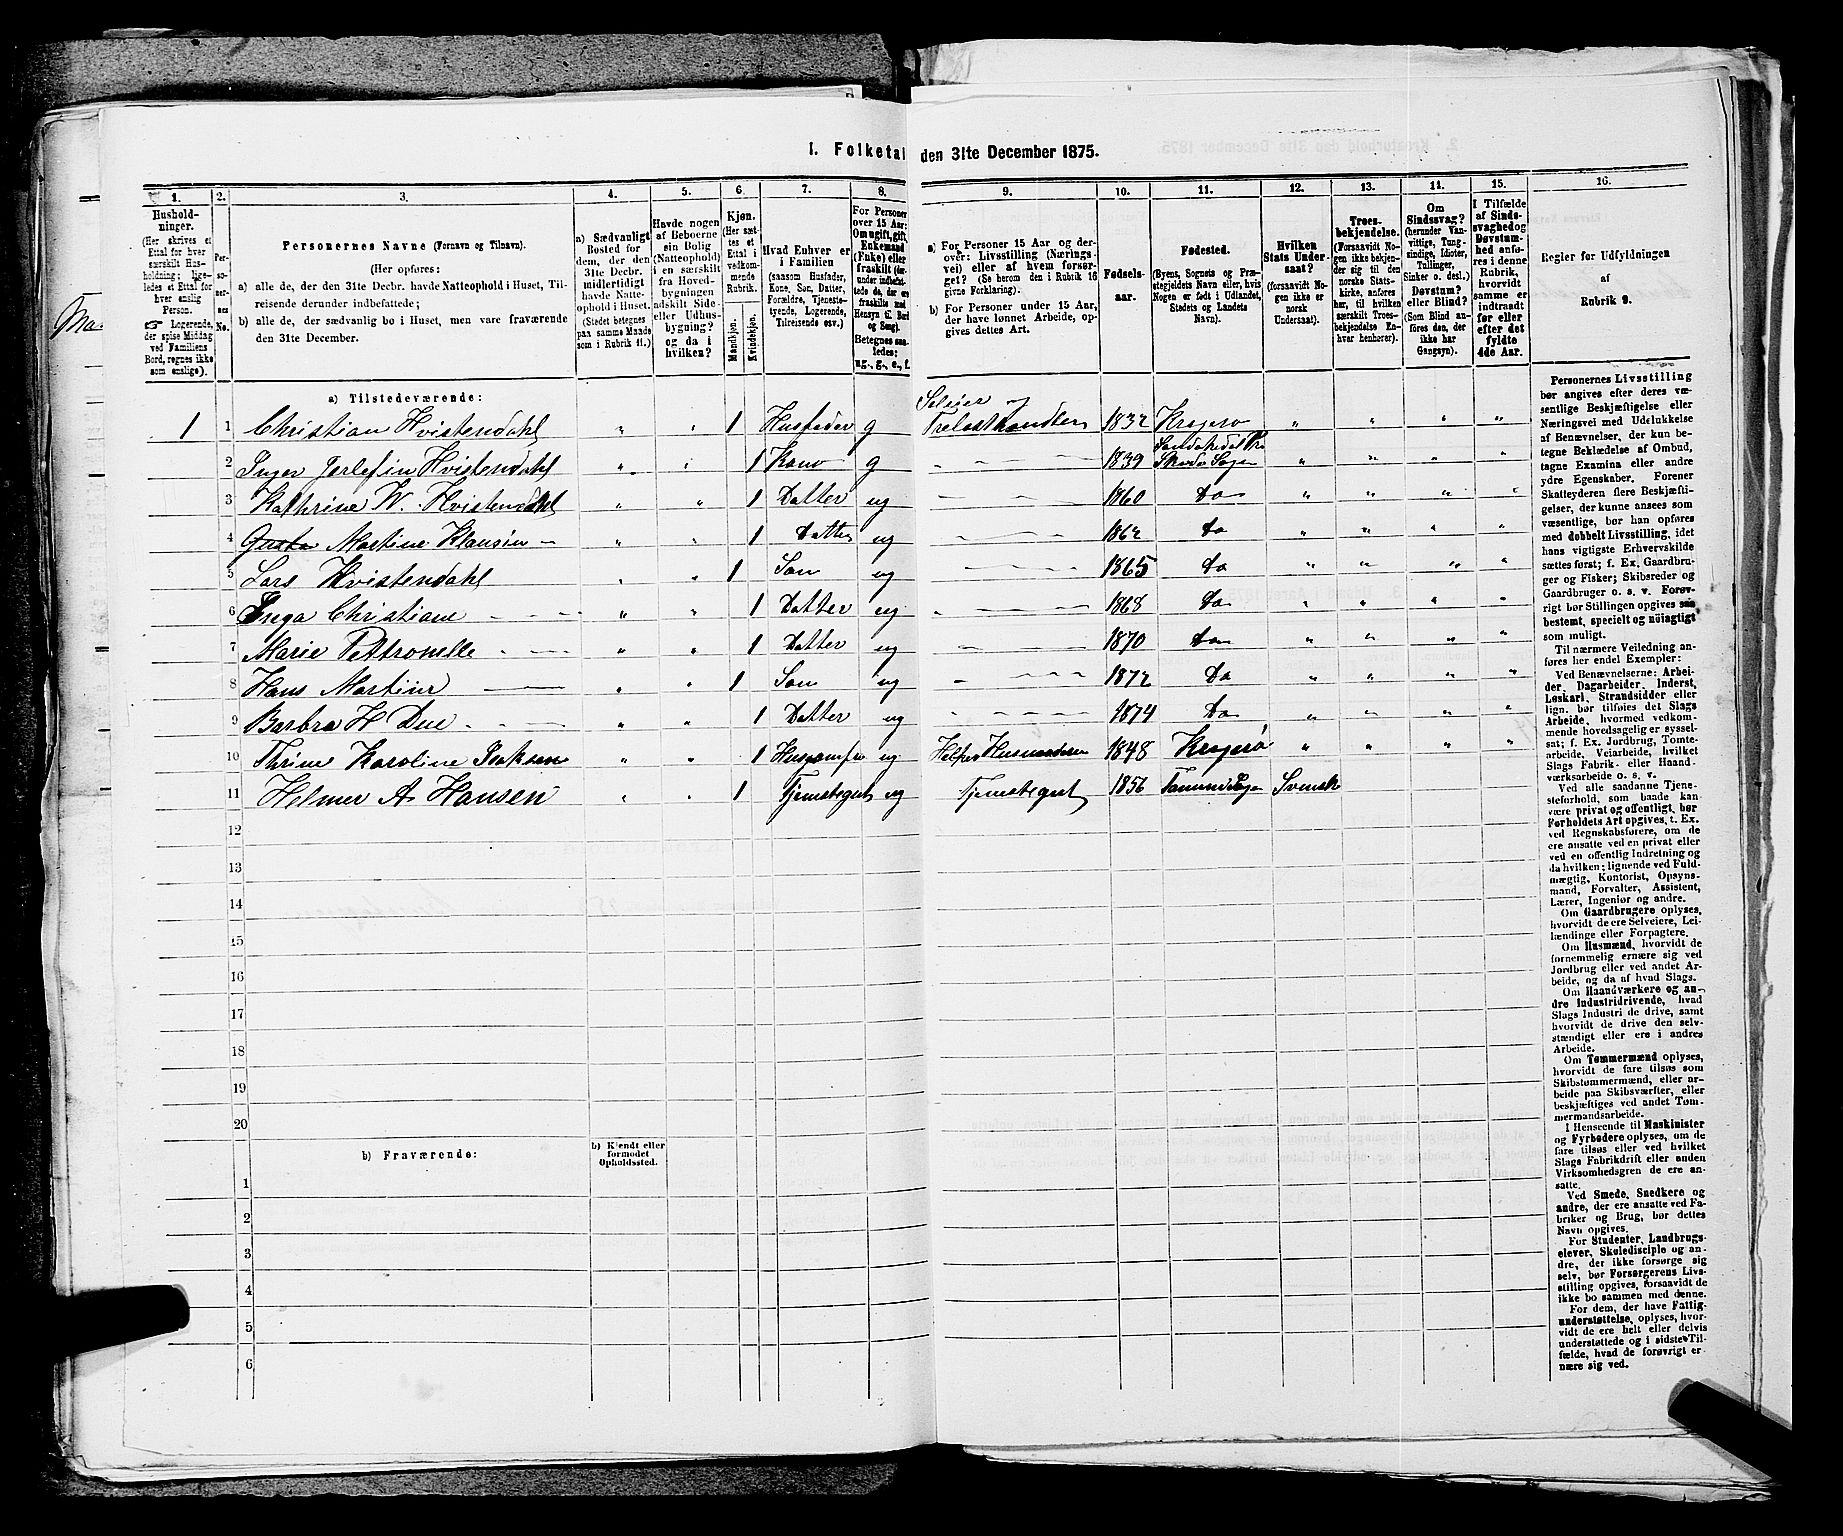 1. Folketal den 31te December 1875.
1. 2. 3. 4. 5. 6. 7. 8. 9. 10. 11. 12. 13. 14. 15. 16.
Hushold-
ninger.
(Her skrives et
Ettal for hver
særskilt Hus-
holdning; lige-
ledes et Ettal for
hver enslig
Person.
☞ Logerende,
der spise Middag
ved Familiens
Bord, regnes ikke
som enslige).
Per-
so-
ner-
nes
No.
Personernes Navne (Fornavn og Tilnavn).
(Her opføres:
a) alle de, der den 31te Decbr. havde Natteophold i Huset, Til-
reisende derunder indbefattede;
b) alle de, der sædvanlig bo i Huset, men vare fraværende
den 31te December.
a) Sædvanligt
Bosted for
dem, der den
31te Decbr.
midlertidigt
havde Natte-
ophold i Huset
(Stedet betegnes
paa samme Maade
som i Rubrik 11.)
Havde nogen
af Beboerne
sin Bolig
(Natteophold)
i en særskilt
fra Hoved-
bygningen
adskilt Side-
eller Udhus-
bygning?
og da i
hvilken?
Kjøn.
(Her sæt-
tes et
Ettal i
vedkom-
mende
Rubrik.
Mandkjøn.
Kvindekjøn.
Hvad Enhver er
i Familien
(saasom Husfader,
Kone, Søn, Datter,
Forældre, Tjeneste-
tyende, Logerende,
Tilreisende osv.)
For Personer
over 15 Aar:
Om ugift, gift,
Enkemand
(Enke) eller
fraskilt (der-
under indbefat-
tede de, der ere
fraskilte med
Hensyn til Bord
og Seng).
Betegnes saa-
ledes:
ug., g., e., f.
a) For Personer 15 Aar og der-
over: Livsstilling (Nærings-
vei) eller af hvem forsør-
get? (Se herom den i Rubrik 16
givne Forklaring).
b) For Personer under 15 Aar,
der have lønnet Arbeide, op-
gives dettes Art.
Fødsels-
aar.
Fødested.
(Byens, Sognets og Præ-
stegjeldets Navn eller, hvis
Nogen er født i Udlandet,
Stedets og Landets
Navn).
Hvilken
Stats Under-
saat?
(forsaavidt No-
gen ikke er
norsk
Undersaat).
Troes-
bekjendelse.
(Forsaavidt No-
gen ikke bekjen-
der sig til den
norske Stats-
kirke, anføres
her, til hvilken
særskilt Troes-
bekjendelse En-
hver henhører).
Om
Sindssvag?
(herunder Van-
vittige, Tung-
sindige, Idioter,
Tullinger,
Sinker o. desl.)
Døvstum?
eller Blind?
(Som Blind an-
føres den, der
ikke har
Gangsyn).
I Tilfælde
af Sinds-
svaghed og
Døvstum-
hed anfø-
res i denne
Rubrik,
hvorvidt
samme er
indtraadt
før eller
efter det
fyldte
4de Aar.
Regler for Udfyldningen
af
Rubrik 9.
a) Tilstedeværende:
1 1 Christian Hvistendahl " " 1 Husfader g Seleier og Trelasthandler 1832 Kragerø " " " "
2 Inger Hvistendahl " " 1 Kone g 1839 Sandøkedal Skaadø Sogn " " " "
3 Kathrine W. Hvistendahl " " 1 Datter ug 1860 Do " " " "
4 Martine Klausin " " 1 Datter ug 1862 Do " " " "
5 Lars Hvistendahl " " 1 Søn ug 1865 Do " " " "
6 Inga Christiane " " 1 Datter ug 1868 Do " " " "
7 Marie Pettronelle " " 1 Datter ug 1870 Do " " " "
8 Hans Martin " " 1 Søn ug 1872 Do " " " "
9 Barbra H Due " " 1 Datter ug 1874 Do " " " "
10 Thrine Karoline Isaksen " " 1 Husjomfru ug Helper Husmoderen 1848 Kragerø " " " "
11 Helmer A Hansen " " 1 Tjenestegut ug Tjenestegut 1856 Tanum Sogn Svensk
12
13
14
15
16
17
18
19
20
b) Fraværende:
b) Kjendt eller
formodet
Opholdssted.
1
2
3
4
5
6
Personernes Livsstilling
bør angives efter deres væ-
sentlige Beskjæftigelse eller
Næringsvei med Udelukkelse
af Benævnelser, der kun be-
tegne Beklædelse af Ombud,
tagne Examina eller andre
ydre Egenskaber. Forener
Skatteyderen flere Beskjæfti-
gelser, der kunne ansees som
væsentlige, bør han opføres
med dobbelt Livsstilling, idet
hans vigtigste Erhvervskilde
sættes først; f. Ex. Gaardbru-
ger og Fisker; Skibsreder og
Gaardbruger o. s. v. Forøv-
rigt bør Stillingen opgives saa
bestemt, specielt og nøiagtigt
som muligt.
Til nærmere Veiledning an-
føres her endel Exempler:
Ved Benævnelserne: Arbei-
der, Dagarbeider, Inderst,
Løskarl, Strandsidder eller
lign. bør tilføies det Slags
Arbeide, hvormed vedkom-
mende hovedsagelig er syssel-
sat; f. Ex. Jordbrug, Tomte-
arbeide, Veiarbeide, hvilket
Slags Fabrik- eller Haand-
værksarbeide o. s. v.
Ved alle saadanne Tjene-
steforhold, som baade kan
være privat og offentligt, bør
Forholdets Art opgives, t. Ex.
ved Regnskabsførere, om de
ere ansatte ved en privat eller
ved en offentlig Indretning og
da hvilken; lignende ved Fuld-
mægtig, Kontorist, Opsyns-
mand, Forvalter, Assistent,
Lærer, Ingeniør og andre.
Om Gaardbrugere oplyses,
hvorvidt de ere Selveiere, Lei-
lændinge eller Forpagtere.
Om Husmænd, hvorvidt de
fornemmelig ernære sig ved
Jordbrug eller ved andet Ar-
beide, og da af hvad Slags.
Om Haandværkere og an-
dre Industridrivende, hvad
Slags Industri de drive, samt
hvorvidt de drive den selv-
stændigt eller ere i andres
Arbeide.
Om Tømmermænd oplyses,
hvorvidt de fare tilsøs som
Skibstømmermænd, eller ar-
beide paa Skibsværfter, eller
beskjæftiges ved andet Tøm-
mermandsarbeide.
I Henseende til Maskinister
og Fyrbødere oplyses, om de
fare tilsøs eller ved hvilket
Slags Fabrikdrift eller anden
Virksomhedsgren de ere an-
satte.
Ved Smede, Snedkere og
andre, der ere ansatte ved Fa-
briker og Brug, bør dettes
Navn opgives.
For Studenter, Landbrugs-
elever, Skoledisciple og an-
dre, der ikke forsørge sig
selv, bør Forsørgerens Livs-
stilling opgives, forsaavidt de
ikke bo sammen med denne.
For dem, der have Fattig-
understøttelse, oplyses, hvor-
vidt de ere helt eller delvis
understøttede og i sidste Til-
fælde, hvad de forøvrigt er-
nære sig ved.